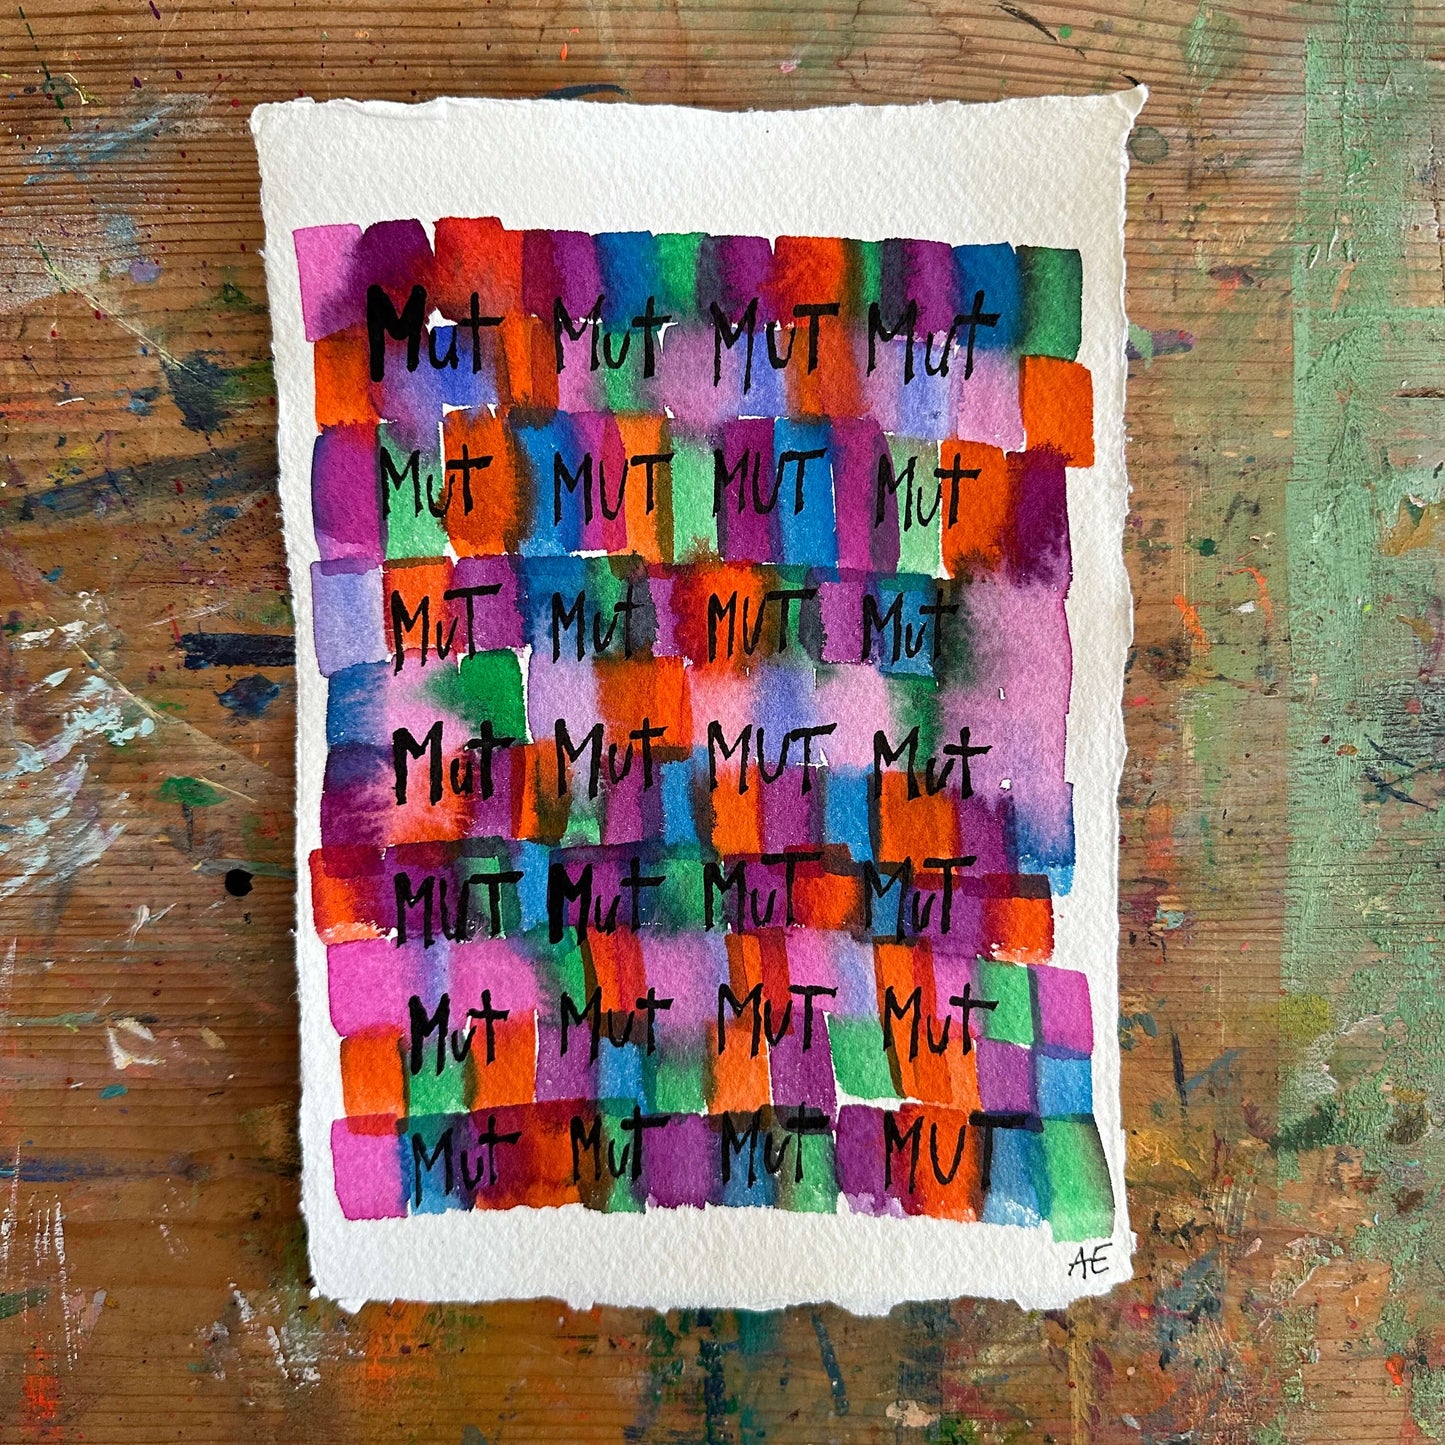 Mut Mut MUT Mut
Mut MUT MUT Mut
MuT Mut MUT Mut
Mut Mut MUT Mut
MUT Mut MuT MuT
Mut Mut MuT Mut
Mut Mut Mut MUT
AE